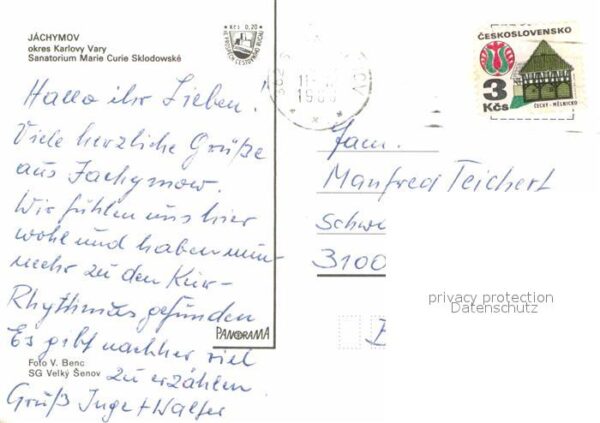 JÁCHYMOV
okres Karlovy Vary
Sanatorium Marie Curie Sklodowské
Kčs 0,20
Hallo ihr Lieben!
Viele herzliche Grüße
aus Jachymow.
Wir fühlen uns hier
wohl und haben nun-
mehr zu den Kur-
Rhythmus gefunden
Es gibt nachher viel
zu erzählen.
Gruß Inge + Walter
Foto V. Benc
SG Velký Šenov
PANORAMA
ČESKOSLOVENSKO
3
Kčs
ČECHY - MĚLNICKO
Fam.
Manfred Teichert
Schwa
3100
privacy protection
Datenschutz